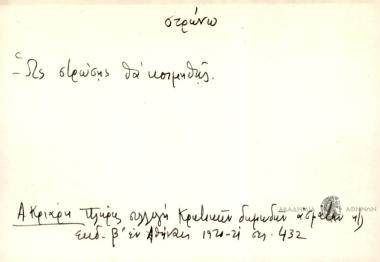 στρώνω
– Ὡς στρώσῃς θὰ κοιμηθῇς.
ΑΚΑΔΗΜΙΑ ΑΘΗΝΩΝ
Α. Κριάρη Πλήρης συλλογή Κρητικῶν δημωδῶν ᾀσμάτων
Ἐκδ. Β' ἐν Ἀθήναις 1920-21 σ. 432